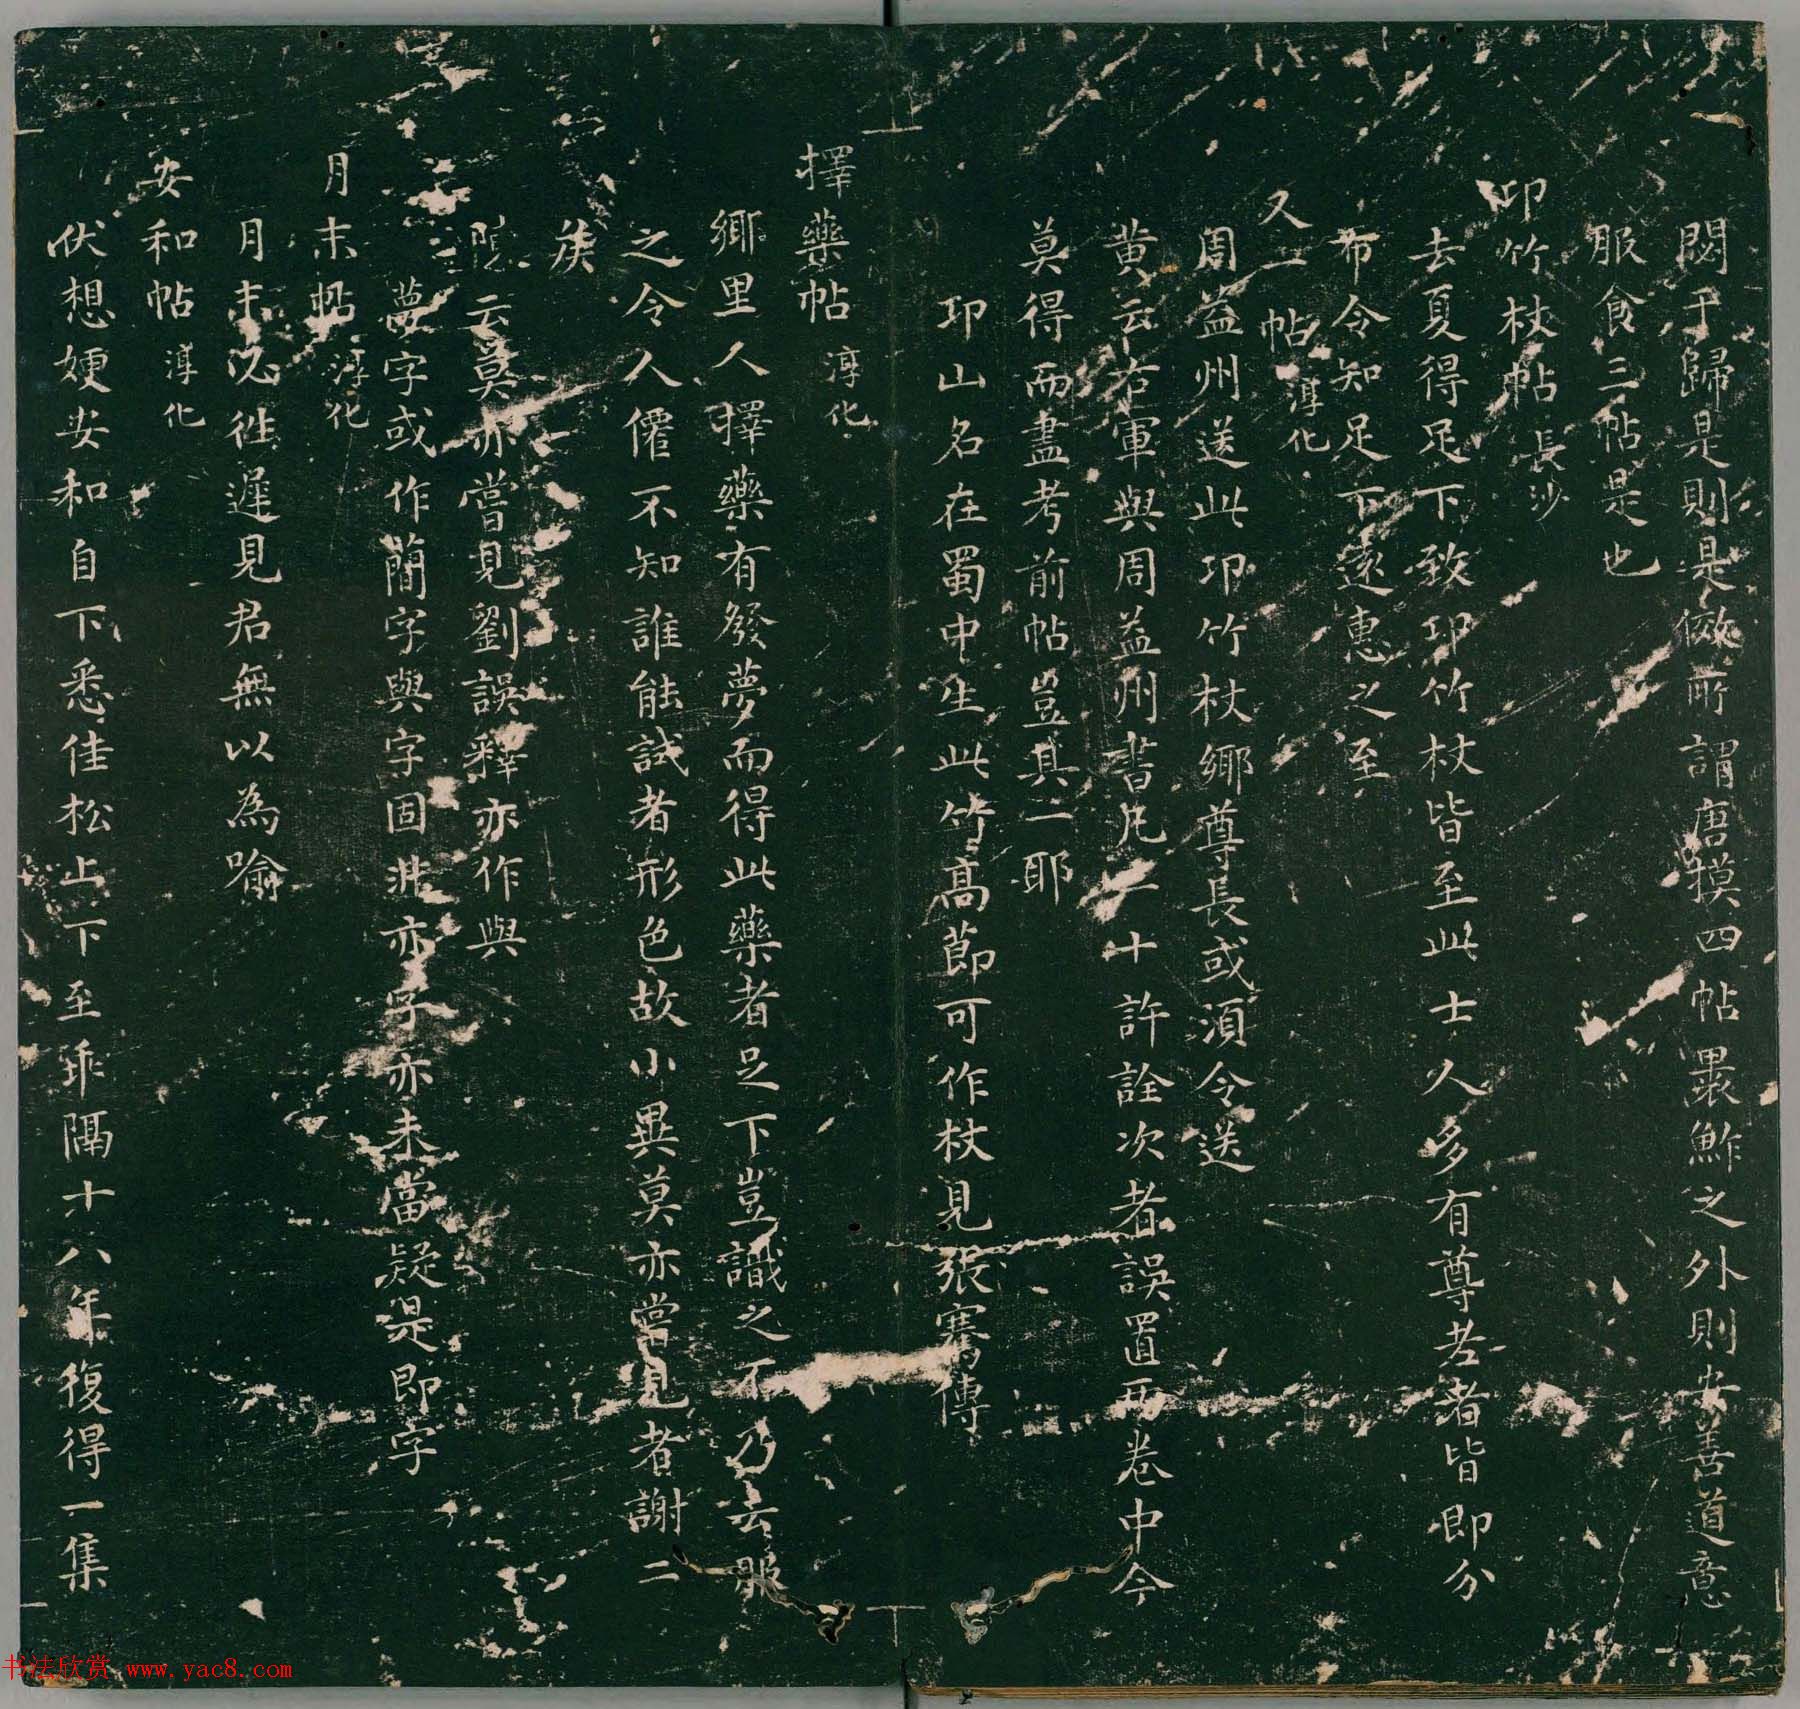 閟于歸是則是倣所謂唐摸四帖褁鮓之外則安善道意
服食三帖是也
卭竹杖帖 長沙
去夏得足下致卭竹杖皆至此士人多有尊老者皆即分
布令知足下遠惠之至
又一帖 淳化
周益州送此卭竹杖鄉尊長或須令送
黄云右軍與周益州書凡二十許詮次者誤置两卷中今
莫得而盡考前帖豈其一耶
卭山名在蜀中生此竹高節可作杖見張騫傳
擇藥帖 淳化
鄉里人擇藥有發夢而得此藥者足下豈識之不乃云服
之令人僊不知誰能試者形色故小異莫亦嘗見者謝二
矦
云莫亦嘗見劉誤釋亦作與
夢字或作蕳字與字固非亦字亦未當疑是即字
月末帖 淳化
月末必往遲見君無以為喻
安和帖 淳化
伏想嫂安和自下悉佳松上下至乖隔十八年復得一集
书法欣赏 www.yac8.com